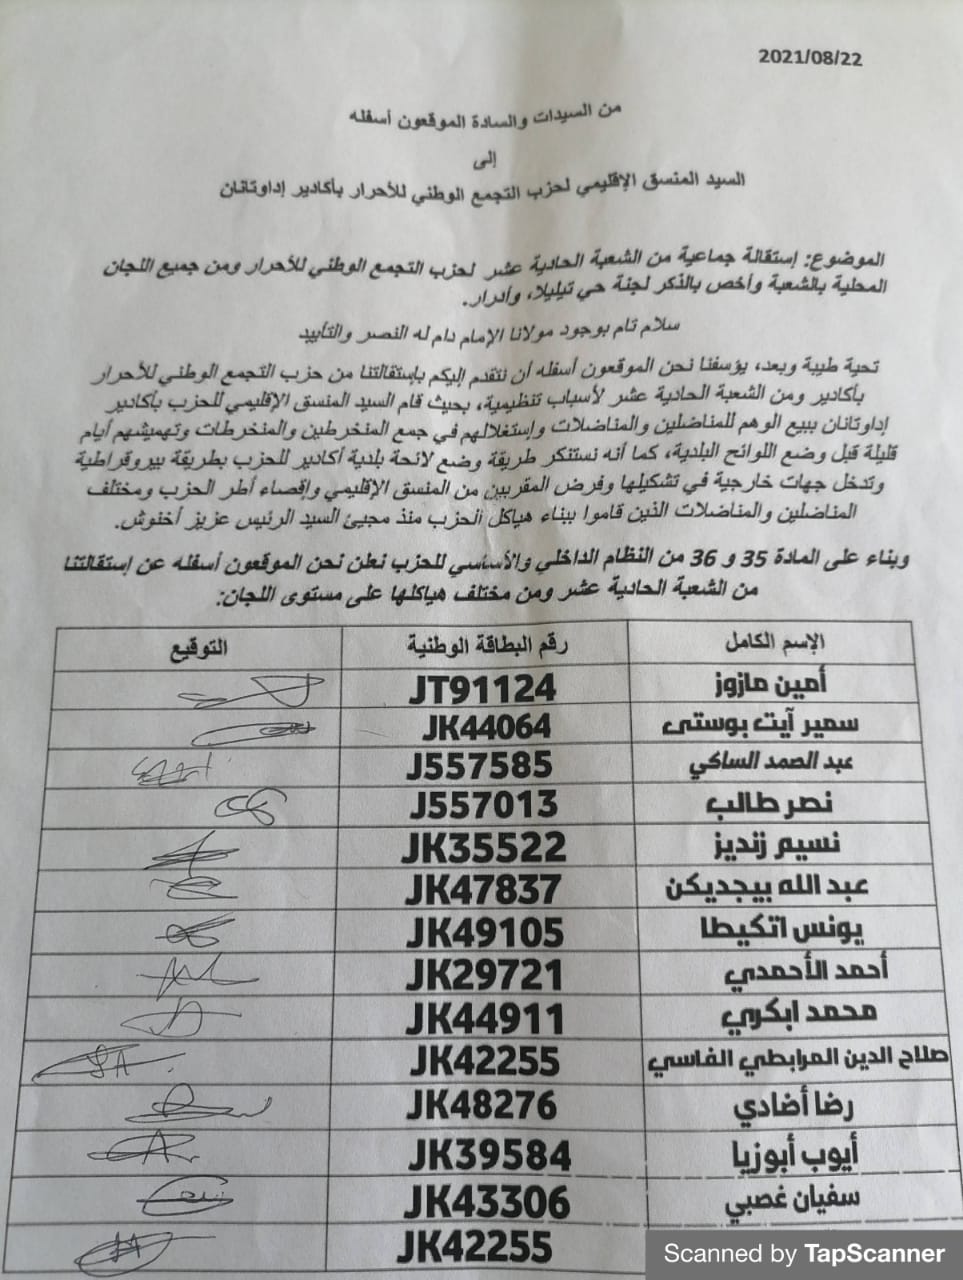 2021/08/22
من السيدات والسادة الموقعون أسفله
إلى
السيد المنسق الإقليمي لحزب التجمع الوطني للأحرار بأكادير إداوتانان
الموضوع: إستقالة جماعية من الشعبة الحادية عشر لحزب التجمع الوطني للأحرار ومن جميع اللجان
المحلية بالشعبة وأخص بالذكر لجنة حي تيليلا، وأدرار.
سلام تام بوجود مولانا الإمام دام له النصر والتأييد
تحية طيبة وبعد، يؤسفنا نحن الموقعون أسفله أن نتقدم إليكم بإستقالتنا من حزب التجمع الوطني للأحرار
بأكادير ومن الشعبة الحادية عشر لأسباب تنظيمية، بحيث قام السيد المنسق الإقليمي للحزب بأكادير
إداوتانان ببيع الوهم للمناضلين والمناضلات وإستغلالهم في جمع المنخرطين والمنخرطات وتهميشهم أيام
قليلة قبل وضع اللوائح البلدية، كما أنه نستنكر طريقة وضع لائحة بلدية أكادير للحزب بطريقة بيروقراطية
وتدخل جهات خارجية في تشكيلها وفرض المقربين من المنسق الإقليمي وإقصاء أطر الحزب ومختلف
المناضلين والمناضلات الذين قاموا ببناء هياكل الحزب منذ مجيئ السيد الرئيس عزيز أخنوش.
وبناء على المادة 35 و 36 من النظام الداخلي والأساسي للحزب نعلن نحن الموقعون أسفله عن إستقالتنا
من الشعبة الحادية عشر ومن مختلف هياكلها على مستوى اللجان:
الإسم الكامل رقم البطاقة الوطنية التوقيع
أمين مازوز JT91124
سمير آيت بوستى JK44064
عبد الصمد الساكي J557585
نصر طالب J557013
نسيم زنديز JK35522
عبد الله بيجديكن JK47837
يونس اتكيطا JK49105
أحمد الأحمدي JK29721
محمد ابكري JK44911
صلاح الدين المرابطي الفاسي JK42255
رضا أضادي JK48276
أيوب أبوزيا JK39584
سفيان غصبي JK43306
JK42255
Scanned by TapScanner